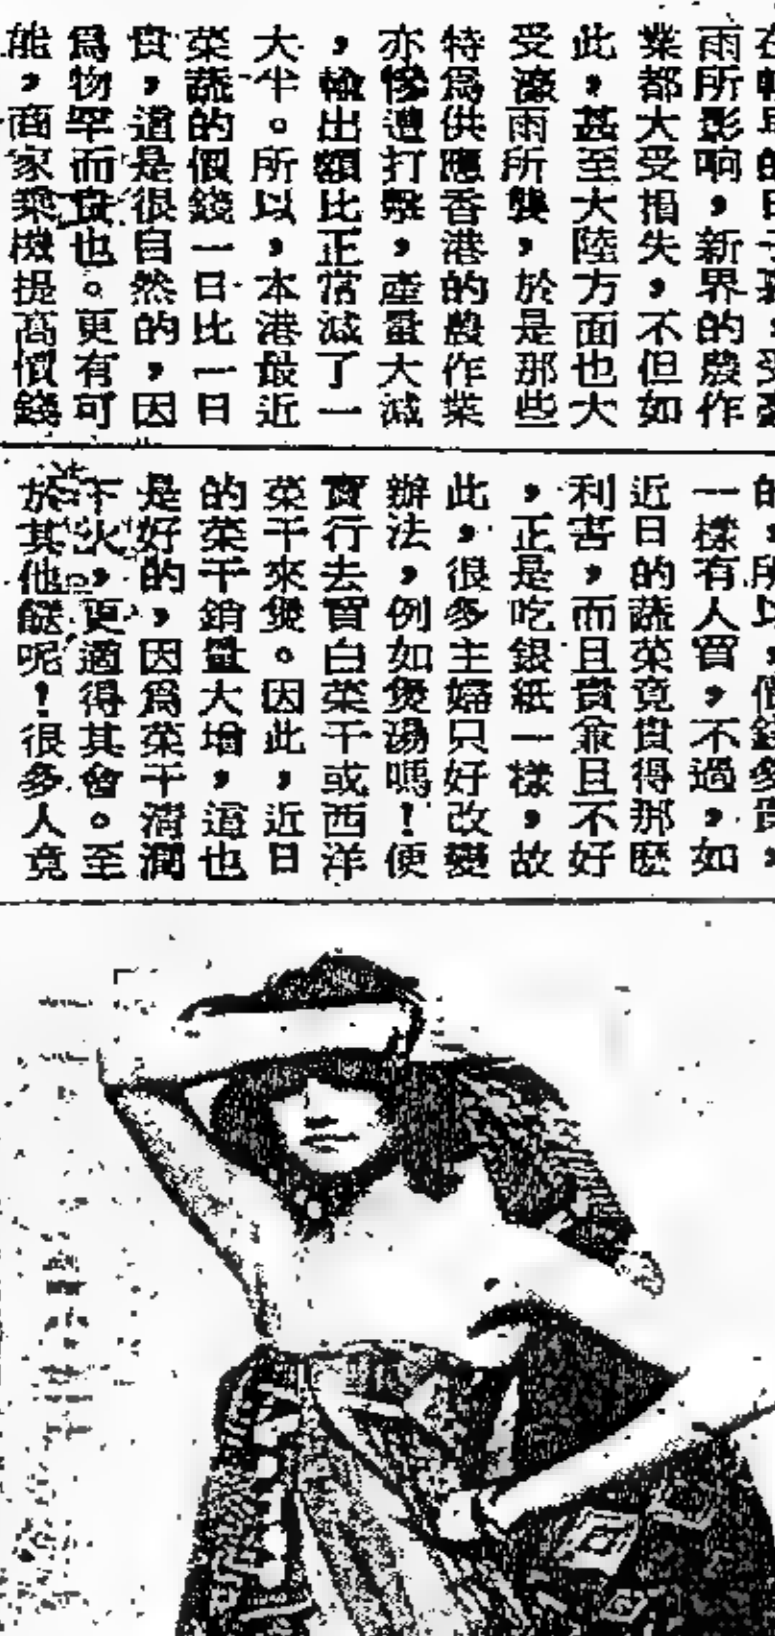 雨所影响，新界的農作
業都大受損失，不但如
此，甚至大陸方面也大
受濠雨所襲，於是那些
特爲供應香港的農作業
亦慘遭打擊，產量大減
，輸出額比正常減了一
大半。所以，本港最近
菜蔬的價錢一日比一日
貴，這是很自然的，因
爲物罕而貴也。更有可
能，商家乘機提高價錢
的，所以，價錢多貴，
一樣有人買，不過，如
近日的蔬菜竟貴得那麽
利害，而且貴兼且不好
，正是吃銀紙一樣，故
此，很多主婦只好改變
辦法，例如煲湯嗎！便
實行去買白菜干或西洋
菜干來煲。因此，近日
的菜干銷量大增，這也
是好的，因爲菜干清潤
下火，更適得其會。至
於其他餸呢！很多人竟